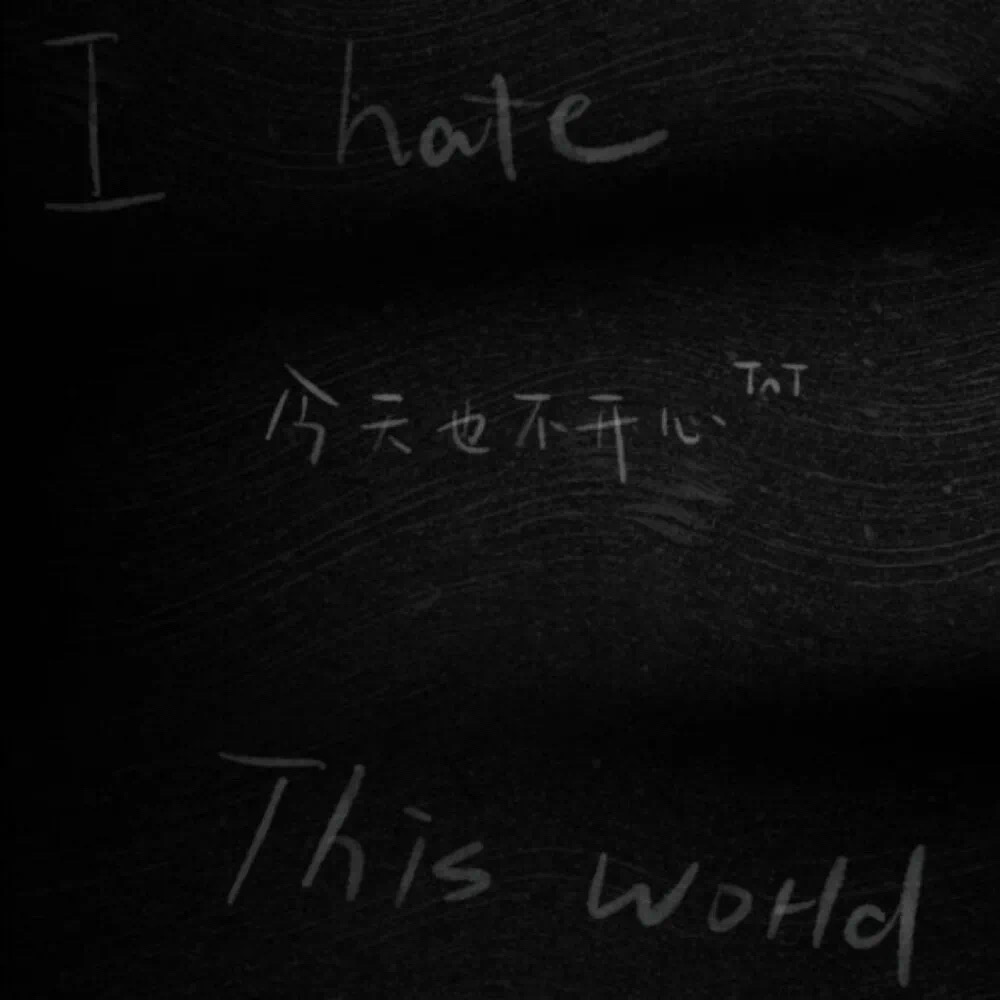 I hate
今天也不开心 TnT
This world